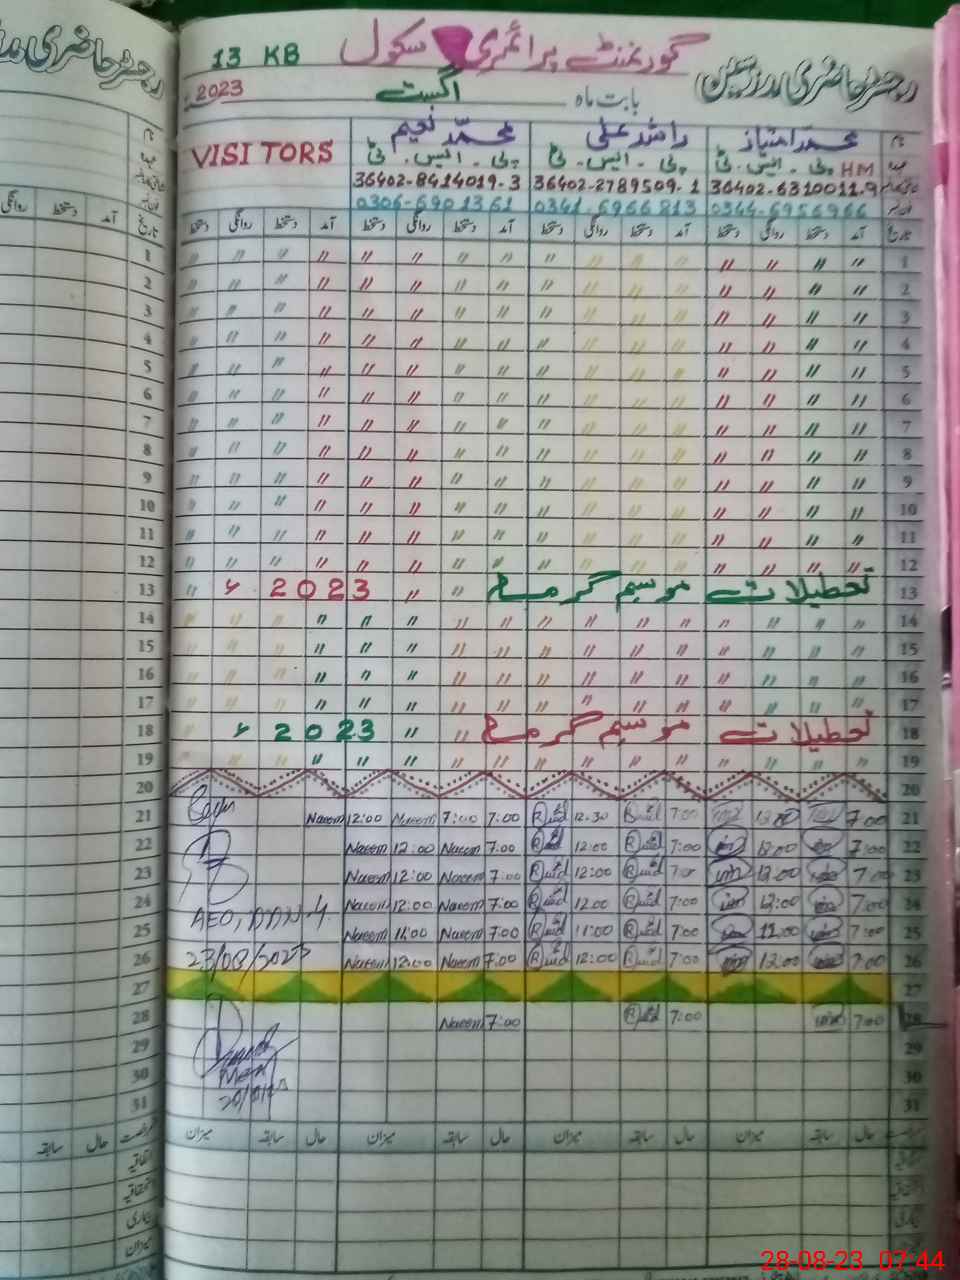 رجسٹر حاضری مدرسین گورنمنٹ پرائمری سکول 13 KB
بابت ماہ اگست 2023
نام محمد امتیاز راشد علی محمد نعیم VISITORS
عہدہ پی۔ ایس۔ ٹی HM پی۔ ایس۔ ٹی پی۔ ایس۔ ٹی
36402-6310011-9 36402-2789509-1 36402-8414019-3
0344-6956966 0341-6966813 0306-6901361
تاریخ آمد دستخط روانگی دستخط آمد دستخط روانگی دستخط آمد دستخط روانگی دستخط آمد دستخط روانگی دستخط
1 〃 〃 〃 〃 〃 〃 〃 〃 〃 〃 〃 〃 〃 〃 〃 〃 1
2 〃 〃 〃 〃 〃 〃 〃 〃 〃 〃 〃 〃 〃 〃 〃 〃 2
3 〃 〃 〃 〃 〃 〃 〃 〃 〃 〃 〃 〃 〃 〃 〃 〃 3
4 〃 〃 〃 〃 〃 〃 〃 〃 〃 〃 〃 〃 〃 〃 〃 〃 4
5 〃 〃 〃 〃 〃 〃 〃 〃 〃 〃 〃 〃 〃 〃 〃 〃 5
6 〃 〃 〃 〃 〃 〃 〃 〃 〃 〃 〃 〃 〃 〃 〃 〃 6
7 〃 〃 〃 〃 〃 〃 〃 〃 〃 〃 〃 〃 〃 〃 〃 〃 7
8 〃 〃 〃 〃 〃 〃 〃 〃 〃 〃 〃 〃 〃 〃 〃 〃 8
9 〃 〃 〃 〃 〃 〃 〃 〃 〃 〃 〃 〃 〃 〃 〃 〃 9
10 〃 〃 〃 〃 〃 〃 〃 〃 〃 〃 〃 〃 〃 〃 〃 〃 10
11 〃 〃 〃 〃 〃 〃 〃 〃 〃 〃 〃 〃 〃 〃 〃 〃 11
12 〃 〃 〃 〃 〃 〃 〃 〃 〃 〃 〃 〃 〃 〃 〃 〃 12
13 تعطیلات موسم گرما 〃 〃 2023 ء 〃 13
14 〃 〃 〃 〃 〃 〃 〃 〃 〃 〃 〃 〃 〃 〃 〃 〃 14
15 〃 〃 〃 〃 〃 〃 〃 〃 〃 〃 〃 〃 〃 〃 〃 〃 15
16 〃 〃 〃 〃 〃 〃 〃 〃 〃 〃 〃 〃 〃 〃 〃 〃 16
17 〃 〃 〃 〃 〃 〃 〃 〃 〃 〃 〃 〃 〃 〃 〃 〃 17
18 تعطیلات موسم گرما 〃 〃 2023 ء 〃 18
19 〃 〃 〃 〃 〃 〃 〃 〃 〃 〃 〃 〃 〃 〃 〃 〃 19
20 20
21 7:00 7:00 12:30 7:00 7:00 Naeem 12:00 Naeem 21
22 7:00 12:00 7:00 12:00 7:00 Naeem 12:00 Naeem 22
23 7:00 12:00 12:00 7:00 Naeem 12:00 Naeem 23
24 7:00 12:00 7:00 12:00 7:00 Naeem 12:00 Naeem 24
AEO
25 7:00 11:00 7:00 11:00 7:00 Naeem 11:00 Naeem 25
26 7:00 12:00 7:00 12:00 7:00 Naeem 12:00 Naeem 23/08/2023 26
27 27
28 7:00 7:00 7:00 Naeem 28
29 29
30 30
31 31
حال سابقہ میزان حال سابقہ میزان حال سابقہ میزان حال سابقہ میزان
اتفاقیہ
استحقاقیہ
بیماری
میزان
28-08-23 07:44